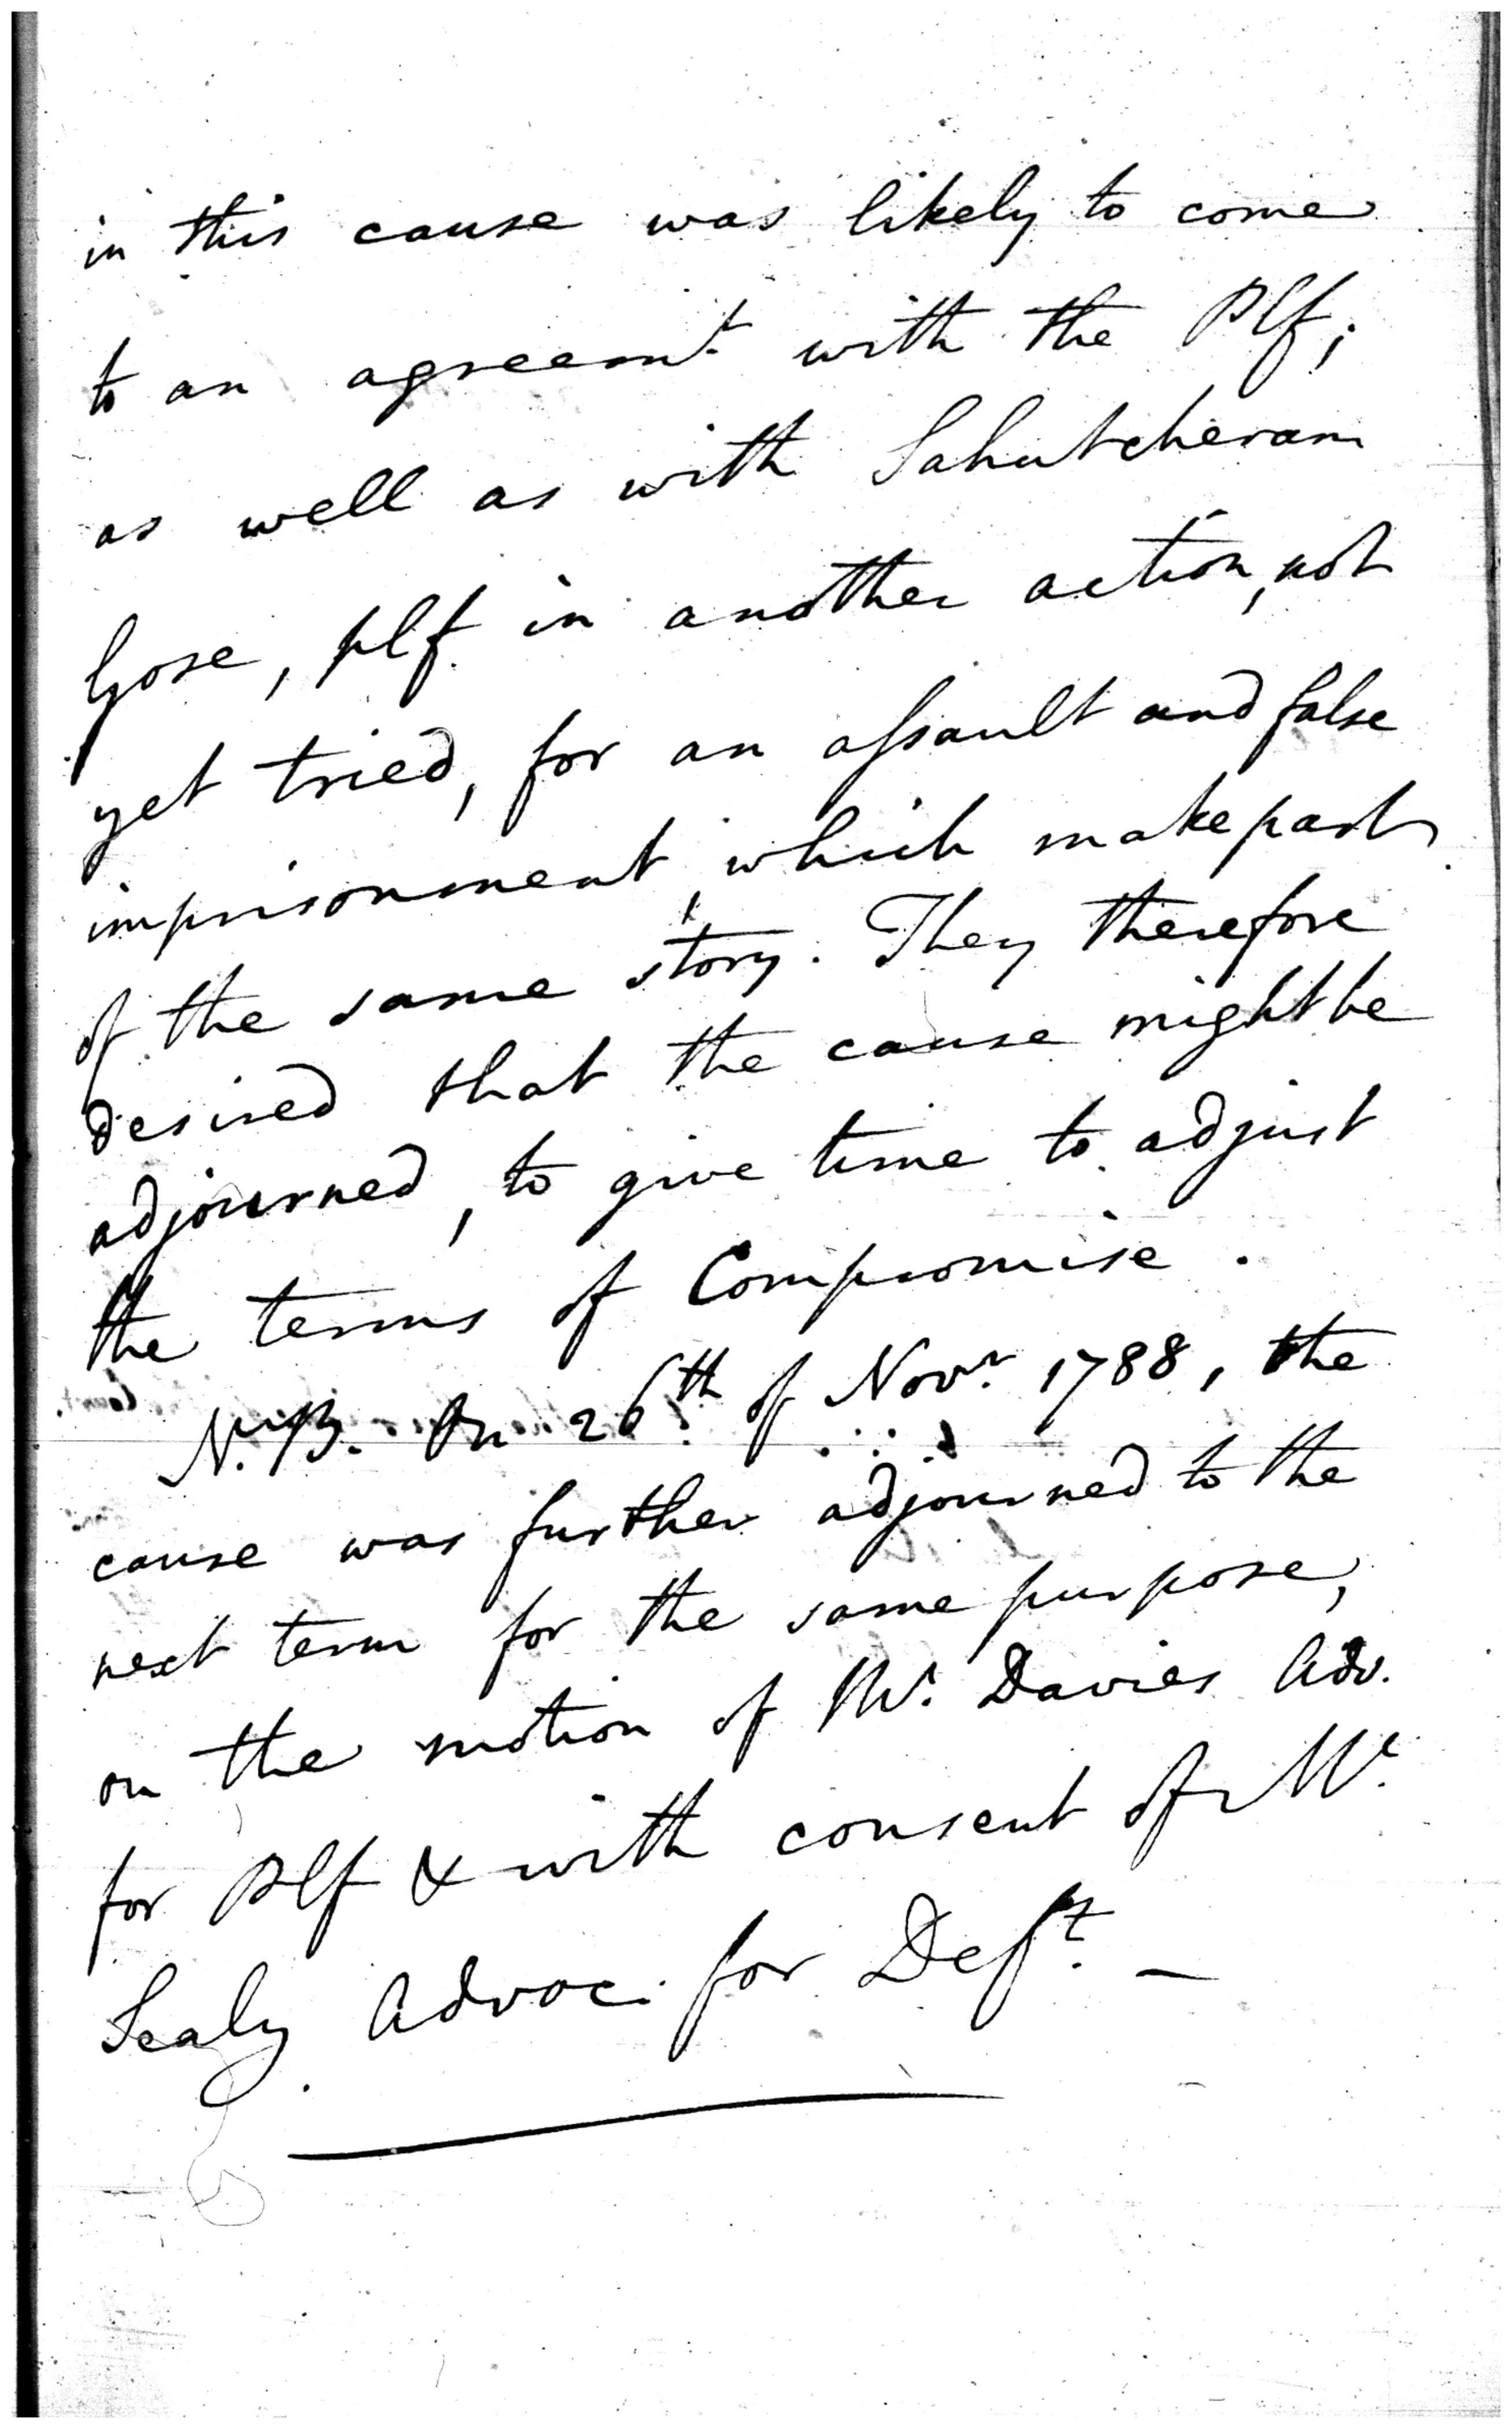 in this cause was likely to come
to an agreemt. with the Plf;
as well as with Sahutcheram
Gose, plf. in another action, not
yet tried, for an assault and false
imprisonment, which make part
of the same story. They therefore
desired that the cause might be
adjourned, to give time to adjust
the terms of Compromise.
N.B. On 26th of Novr. 1788, the
cause was further adjourned to the
next term for the same purpose,
on the motion of Mr. Davies Adv.
for Plf & with consent of Mr.
Sealy Advoc. for Deft. —